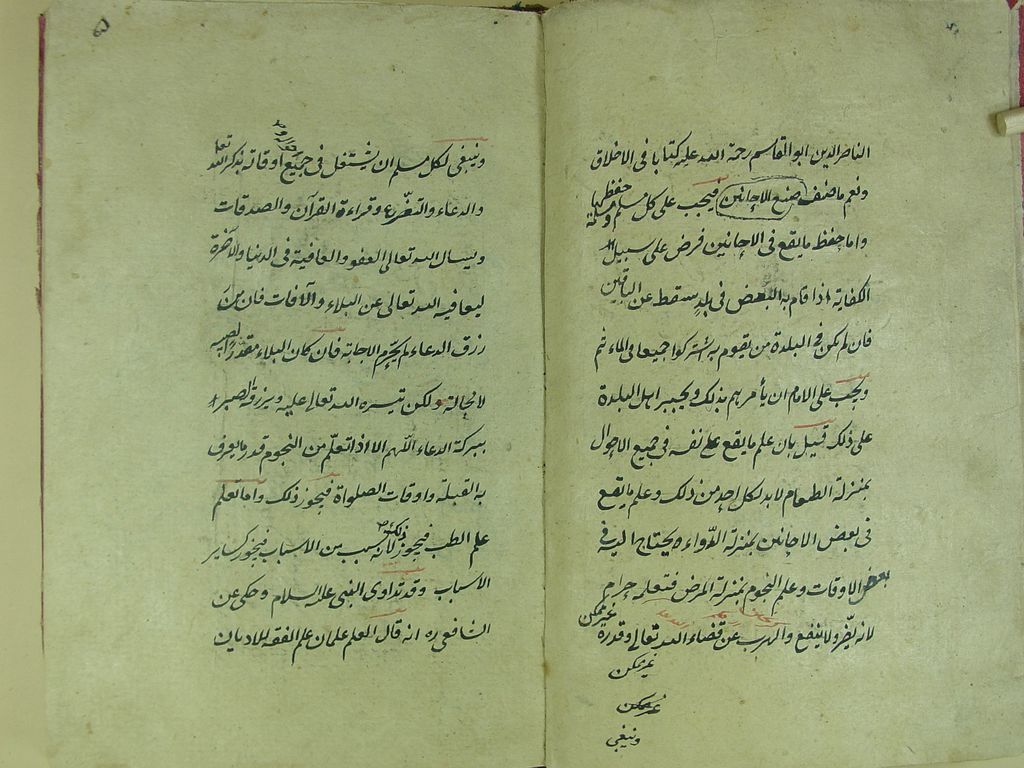 الناصر الدين ابو القاسم رحمة الله عليه كتابا فى الاخلاق
ونعم ما صنف صنع الاحانين فيجب على كل مسلم حفظها ومسلمة
واما حفظ ما يقع فى الاحانين فرض على سبيل
الكفاية اذا قام به البعض فى بلد سقط عن الباقين
فان لم يكن فى البلدة من يقوم به اشتركوا جميعا فى المأثم
ويجب على الامام ان يأمرهم بذلك ويجبر اهل البلدة
على ذلك قيل بان علم ما يقع على نفسه فى جميع الاحوال
بمنزلة الطعام لا بد لكل احد من ذلك وعلم ما يقع
فى بعض الاحانين بمنزلة الدواء يحتاج اليه فى
بعض الاوقات وعلم النجوم بمنزلة المرض فتعلمه حرام
لانه يضر ولا ينفع والهرب عن قضاء الله تعالى وقدره غير ممكن
غير ممكن
غير ممكن
وينبغى
وينبغى لكل مسلم ان يشتغل فى جميع اوقاته بذكر الله تعا
والدعاء والتضرع وقراءة القرآن والصدقات
ويسال الله تعالى العفو والعافية فى الدنيا والآخرة
ليعافيه الله تعالى عن البلاء والآفات فان من
رزق الدعاء لم يحرم الاجابة فان كان البلاء مقدرا يصيبه
لا محالة ولكن تيسره الله تعالى عليه ويرزقه الصبر
ببركة الدعاء اللهم الا اذا تعلم من النجوم قدر ما يعرف
به القبلة واوقات الصلواة فيجوز ذلك واما تعلم
علم الطب فيجوز ذلك لانه سبب من الاسباب فيجوز كسائر
الاسباب وقد تداوى النبى عليه السلام وحكى عن
الشافعى ره انه قال العلم علمان علم الفقه للاديان